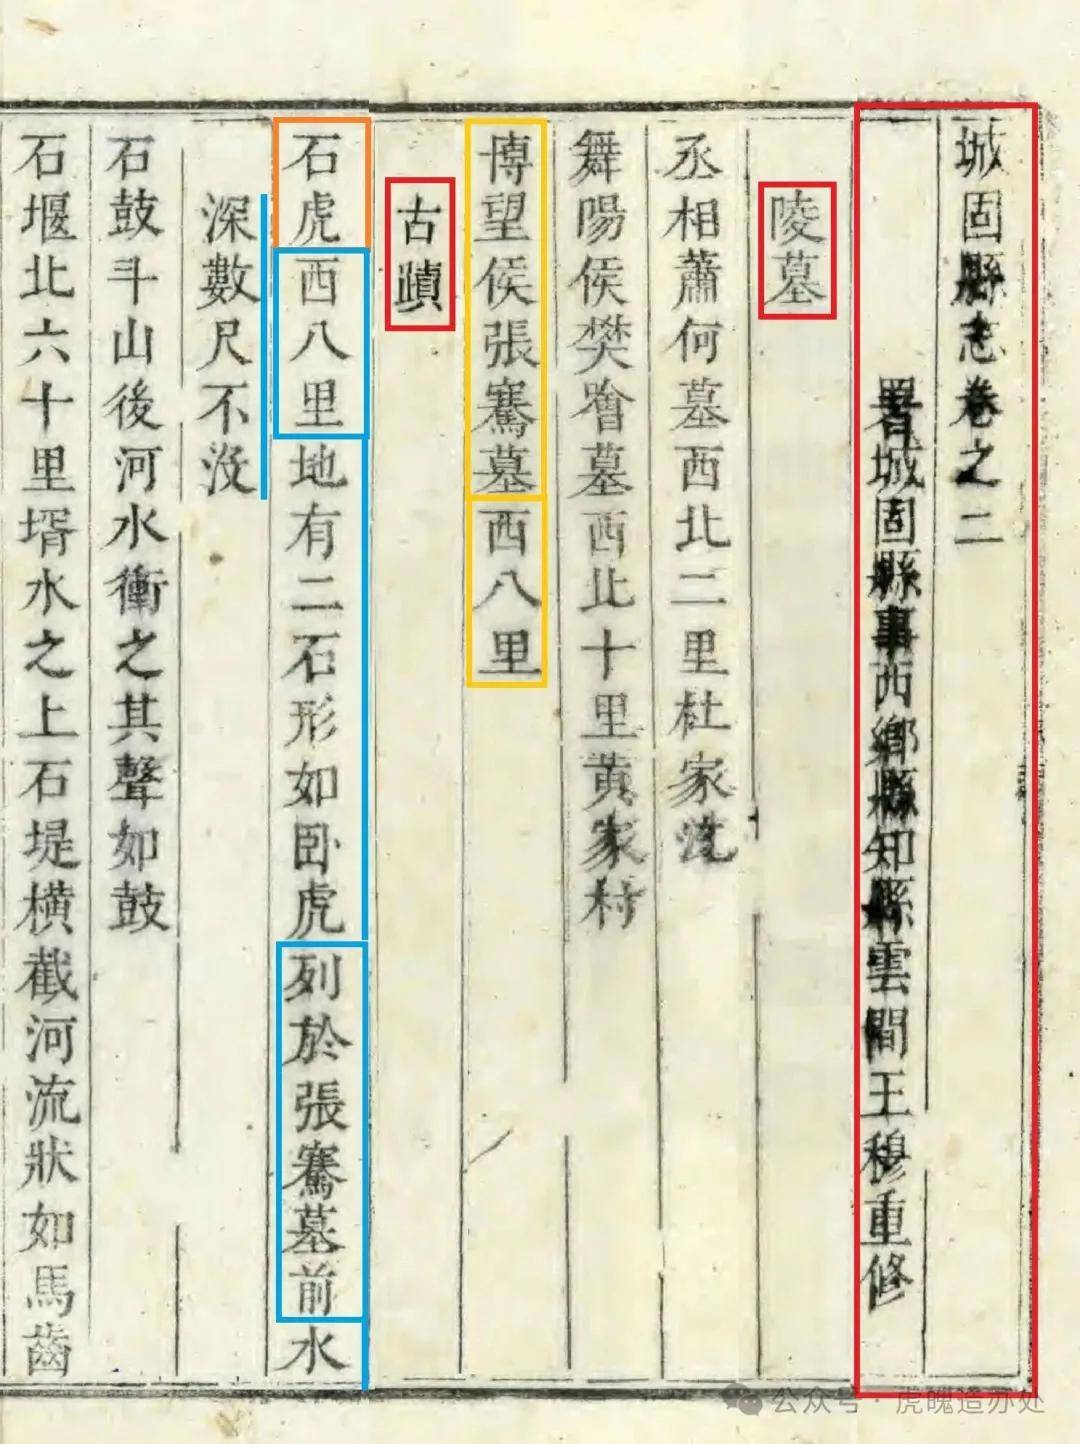 城固縣志卷之二
署城固縣事西鄉縣知縣雲間王穆重修
陵墓
丞相蕭何墓西北二里杜家沈
舞陽侯樊噲墓西北十里黄家村
博望侯張騫墓西八里
古蹟
石虎西八里地有二石形如卧虎列於張騫墓前水
深數尺不没
石鼓斗山後河水衝之其聲如鼓
石堰北六十里壻水之上石堤横截河流狀如馬齒
公众号·虎魄造办处